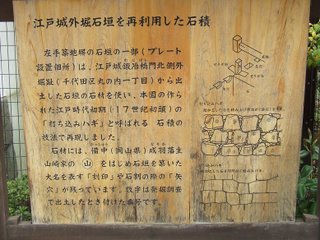 江戸城外堀石垣を再利用した石積
左手幕地際の石垣の一部(プレート
設置個所)は、江戸城鍛冶橋門北側外
堀跡(千代田区丸の内一丁目)から出
土した石垣の石材を使い、本園の作ら
れた江戸時代初期(17世紀初頭)の
「打ち込みハギ」と呼ばれる 石積の
技法で再現しました。
石材には、備中(岡山県)成羽藩主
山崎家の 山 をはじめ石垣を築いた
大名を表す「刻印」や石割の際の「矢
穴」が残っています。数字は発掘調査
で出土したとき付けた番号です。